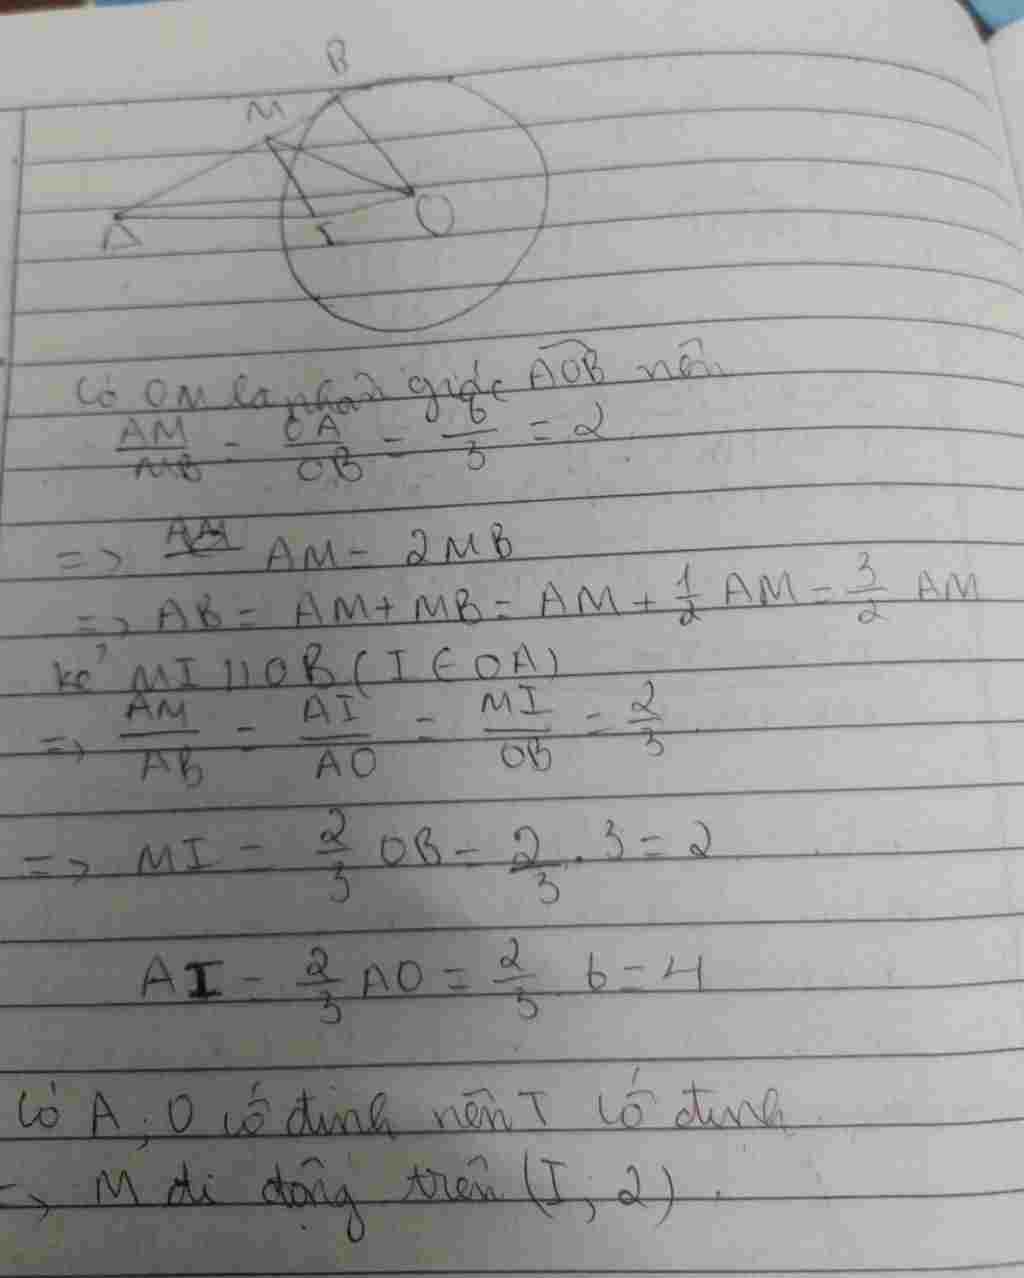 B
M
A
I
O
Có OM là phân giác AOB nên
AM/MB = OA/OB = 6/3 = 2
=> AM = 2MB
=> AB = AM + MB = AM + 1/2 AM = 3/2 AM
kẻ MI // OB (I ∈ OA)
=> AM/AB = AI/AO = MI/OB = 2/3
=> MI = 2/3 OB = 2/3 . 3 = 2
AI = 2/3 AO = 2/3 6 = 4
Có A, O cố định nên I cố định
=> M di động trên (I, 2).